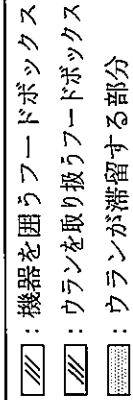 ：機器を囲うフードボックス
：ウランを取り扱うフードボックス
：ウランが滞留する部分